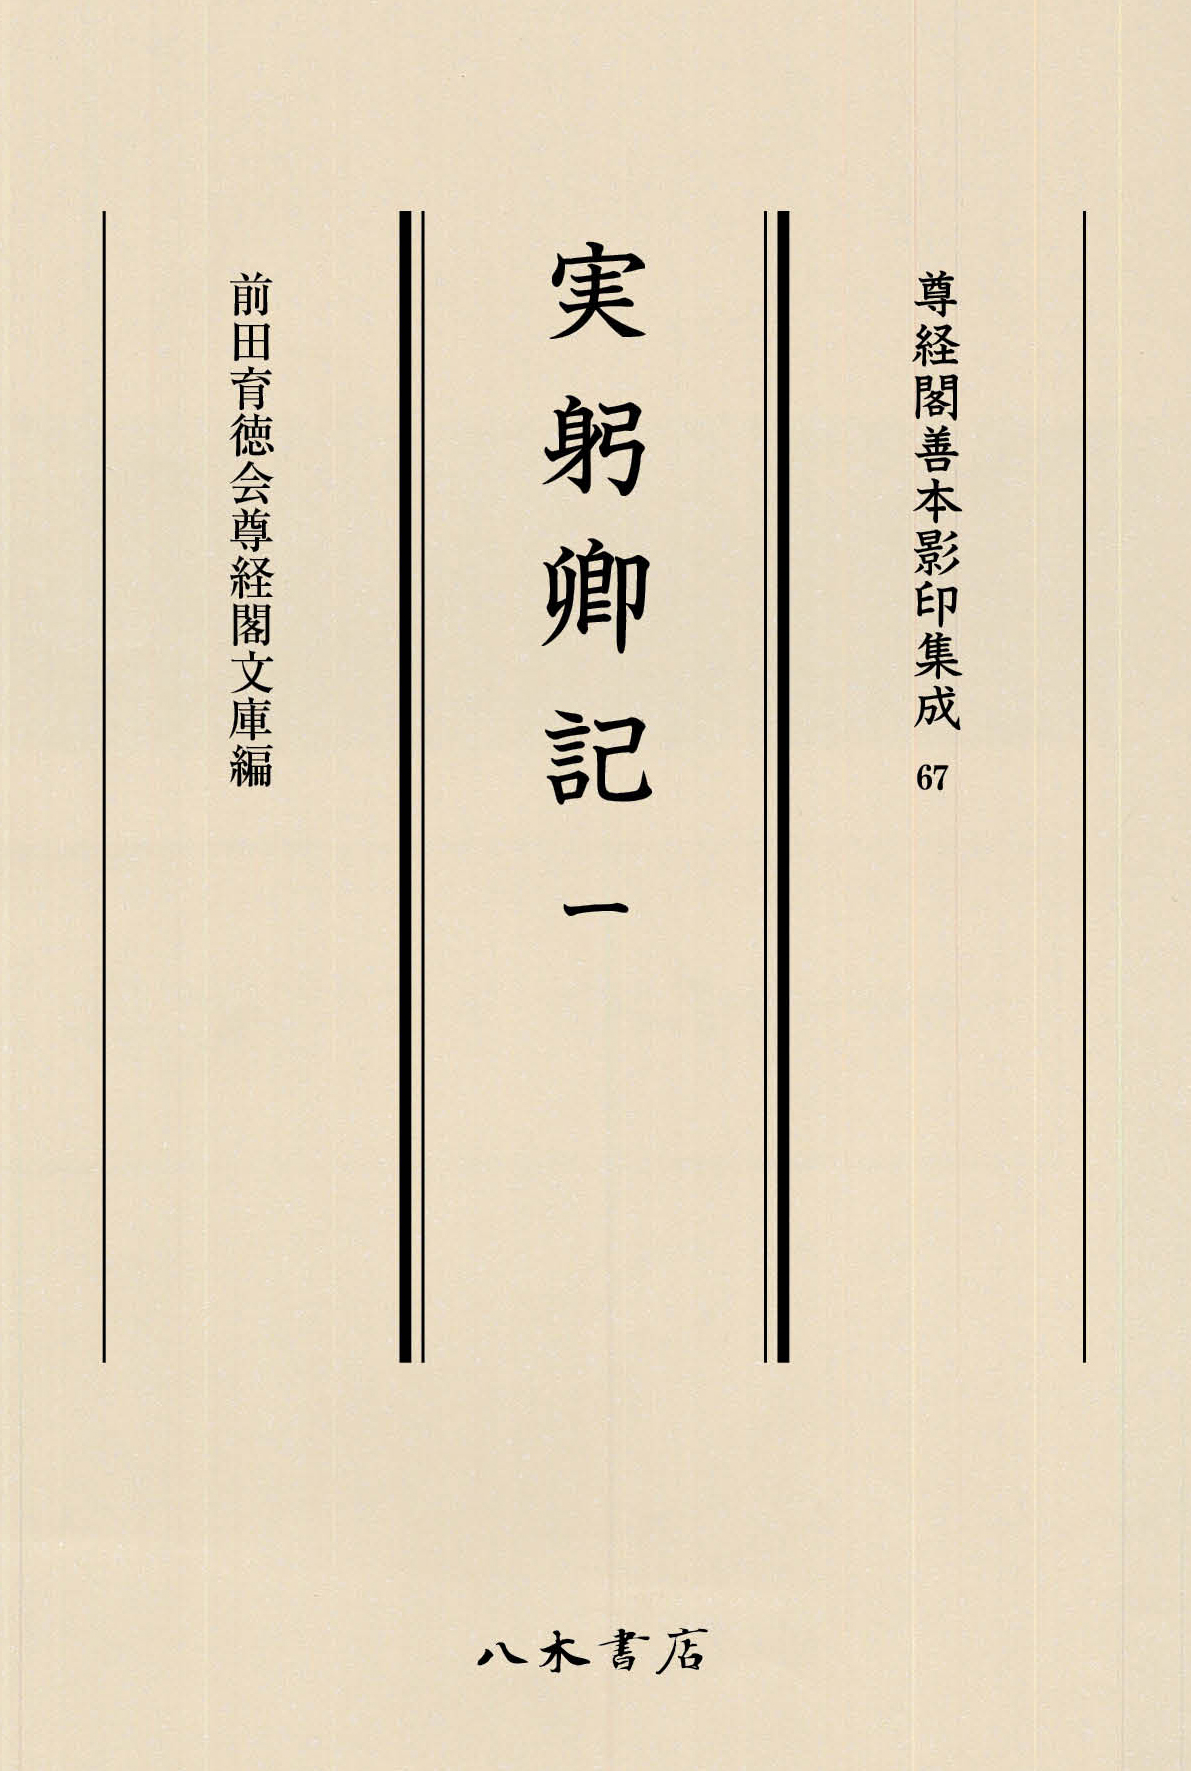 尊経閣善本影印集成 67
実躬卿記 一
前田育徳会尊経閣文庫編
八木書店